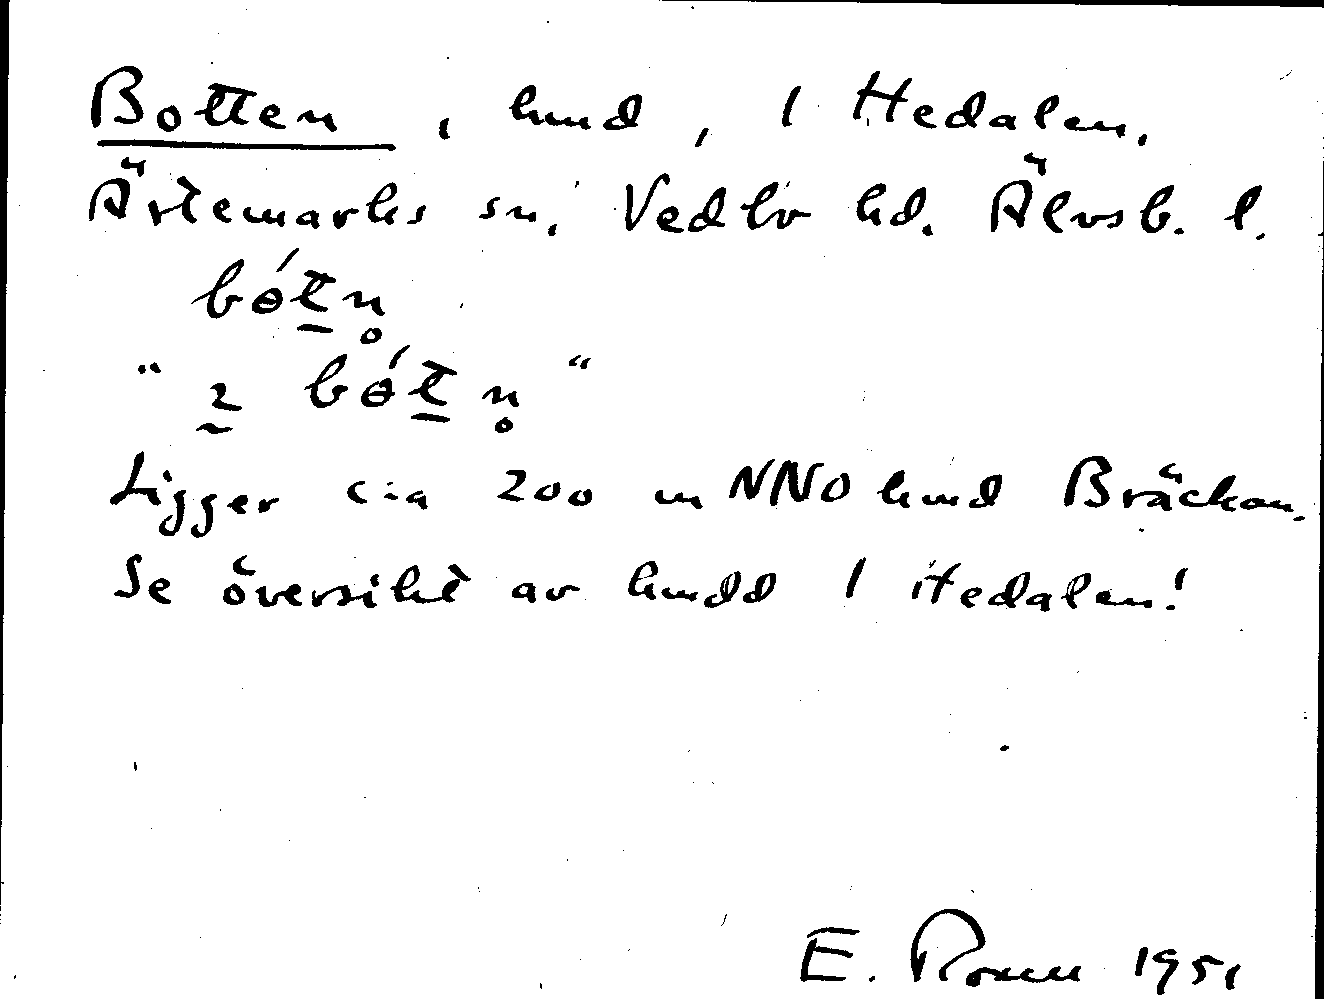 Botten, hmd, 1 Hedalen.
Ärtemarks sn. Vedbo hd. Älvsb. l.
bó̵t̲n̥
" bó̵t̲n̥ "
Ligger c:a 200 m NNO hmd Bräckan.
Se översikt av hmdd 1 Hedalen!
E. 1951